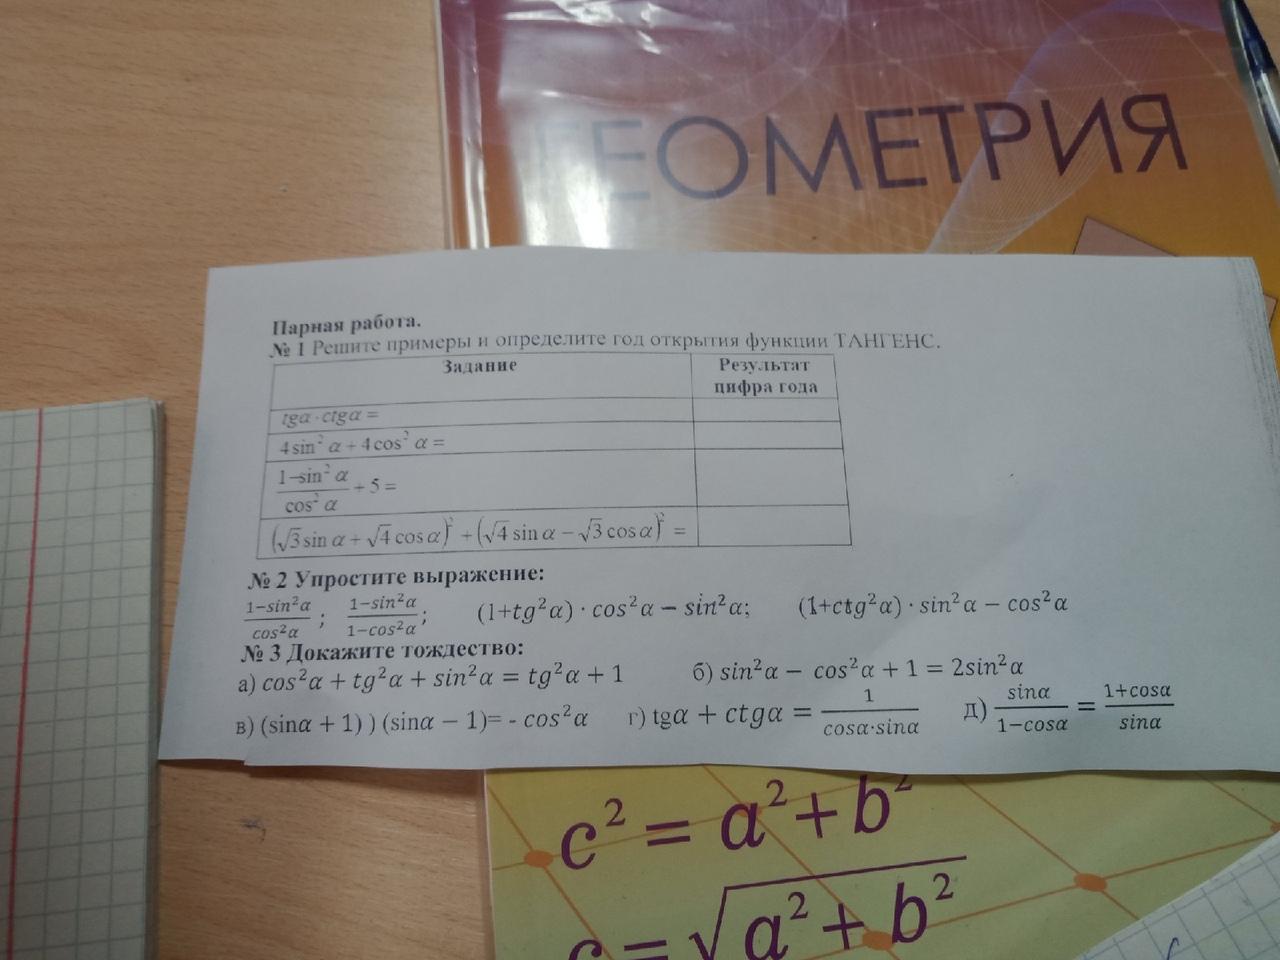 ГЕОМЕТРИЯ
Парная работа.
№ 1 Решите примеры и определите год открытия функции ТАНГЕНС.
Задание
Результат
цифра года
tgα · ctgα =
4 sin² α + 4 cos² α =
(1–sin² α)/(cos² α) + 5 =
(√3 sin α + √4 cos α)² + (√4 sin α – √3 cos α)² =
№ 2 Упростите выражение:
(1−sin²α)/(cos²α) ; (1−sin²α)/(1−cos²α) ; (1+tg²α) · cos²α − sin²α; (1+ctg²α) · sin²α − cos²α
№ 3 Докажите тождество:
а) cos²α + tg²α + sin²α = tg²α + 1 б) sin²α − cos²α + 1 = 2sin²α
в) (sinα + 1) ) (sinα − 1)= - cos²α г) tgα + ctgα = 1/(cosα·sinα) д) sinα/(1−cosα) = (1+cosα)/sinα
c² = a² + b²
c = √(a² + b²)